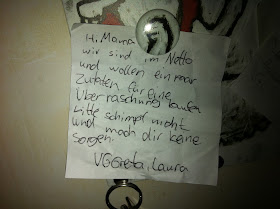 Hi Mama
wir sind im Netto
und wollen ein paar
Zutaten für eine
Überraschung kaufen
bitte schimpf nicht
und mach dir keine
sorgen.
VG Greta, Laura